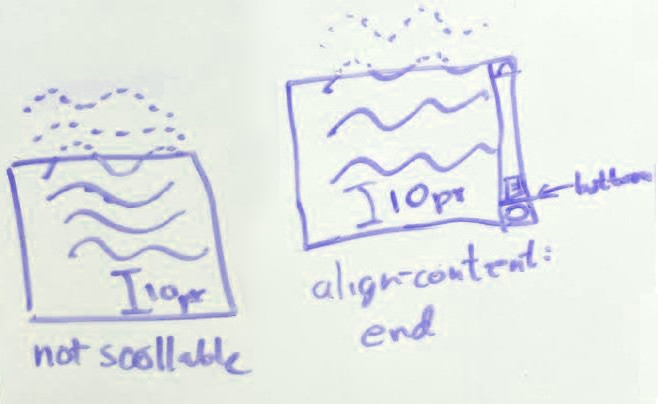 10px
not scollable
10px
bottom
align-content:
end